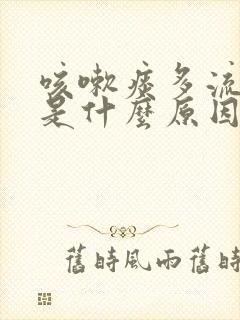 咳嗽痰多流
是什麼原因
舊時風雨舊時